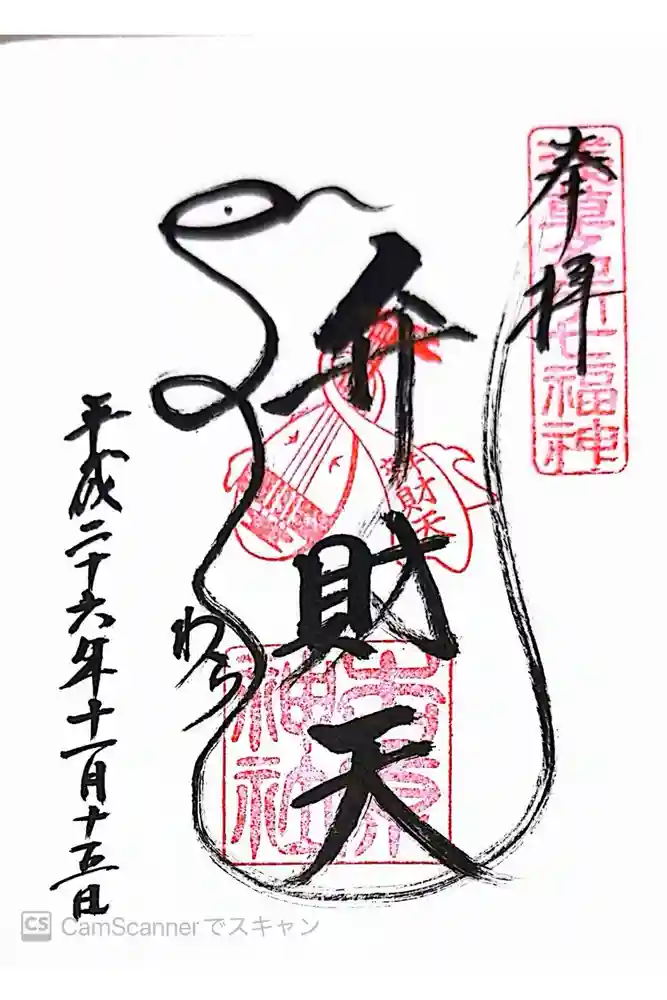 奉拝
浅草名所七福神
弁財天
財天
吉原神社
平成二十六年十一月十五日
CS CamScannerでスキャン